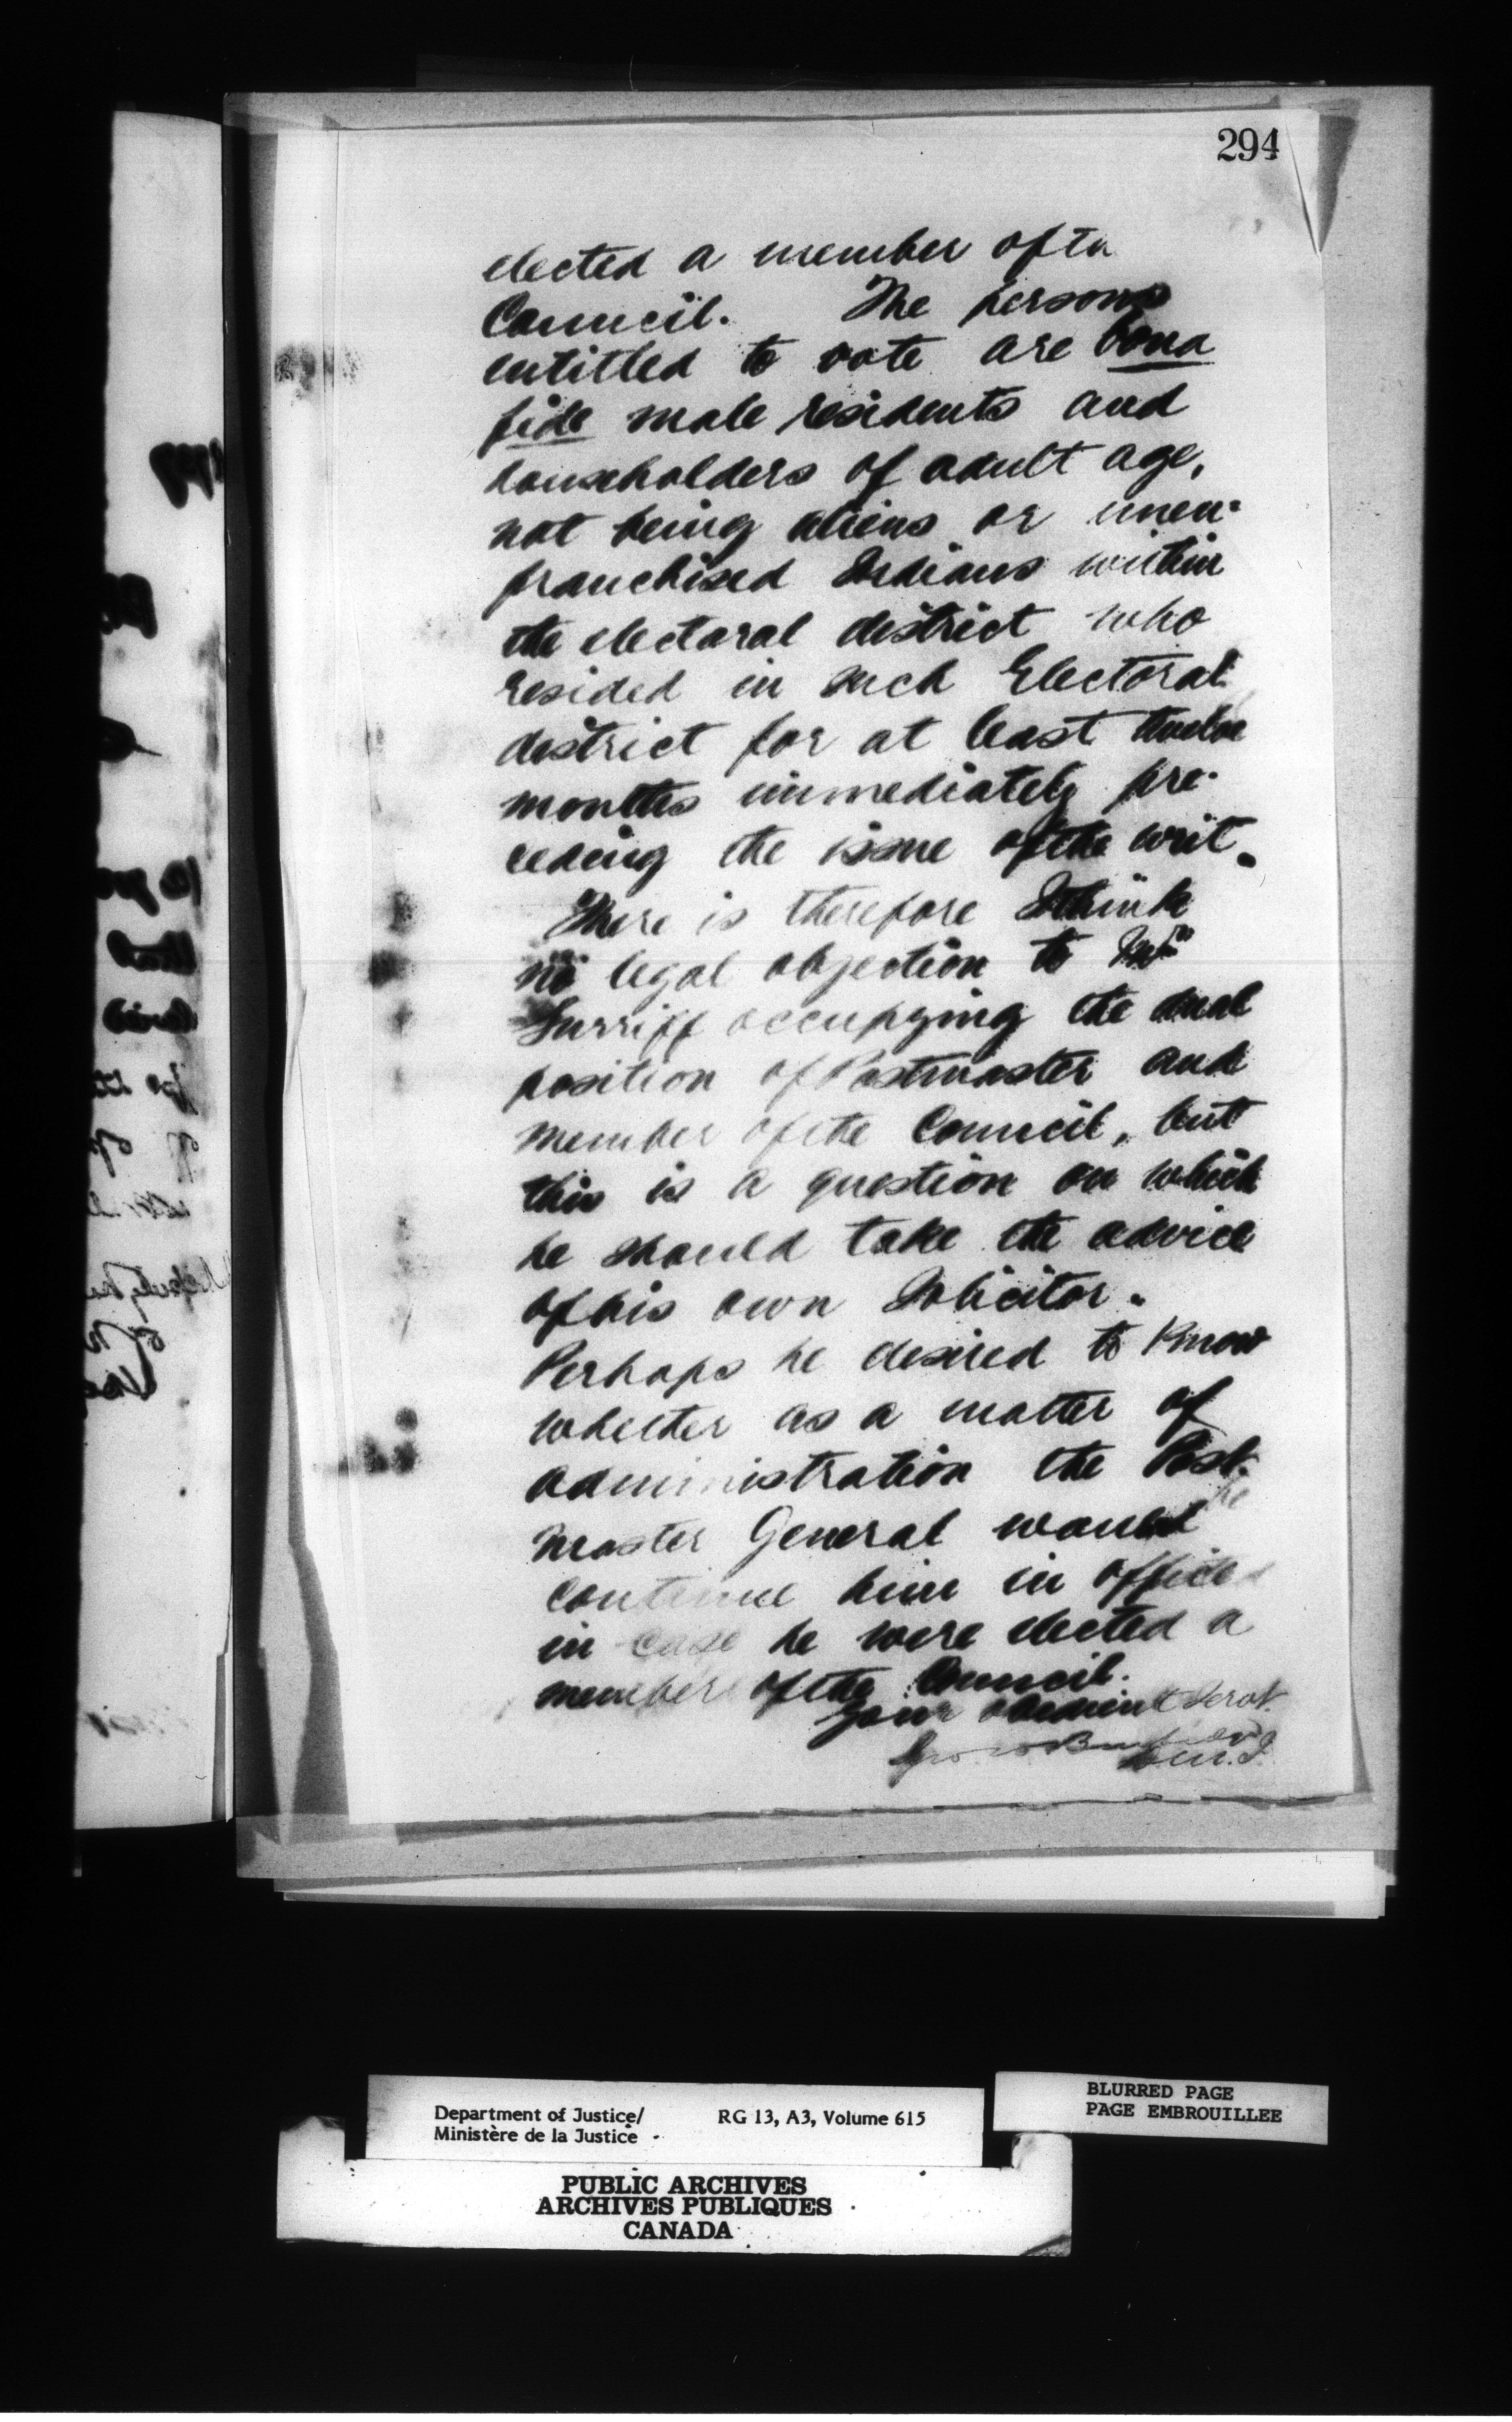 294
elected a member of the
Council. The persons
entitled to vote are bona
fide male residents and
householders of adult age,
not being aliens or unen-
franchised Indians within
the electoral district who
resided in such Electoral
district for at least twelve
months immediately pre-
ceding the issue of the writ.
There is therefore I think
no legal objection to Mr
occupying the dual
position of Postmaster and
member of the Council, but
this is a question on which
he should take the advice
of his own Solicitor.
Perhaps he desired to know
whether as a matter of
administration the Post-
master General would
continue him in office
in case he were elected a
member of the Council.
Your obedient Servt.
Geo. W. Burbidge
D.M.J.
Department of Justice/
Ministère de la Justice
RG 13, A3, Volume 615
BLURRED PAGE
PAGE EMBROUILLEE
PUBLIC ARCHIVES
ARCHIVES PUBLIQUES
CANADA